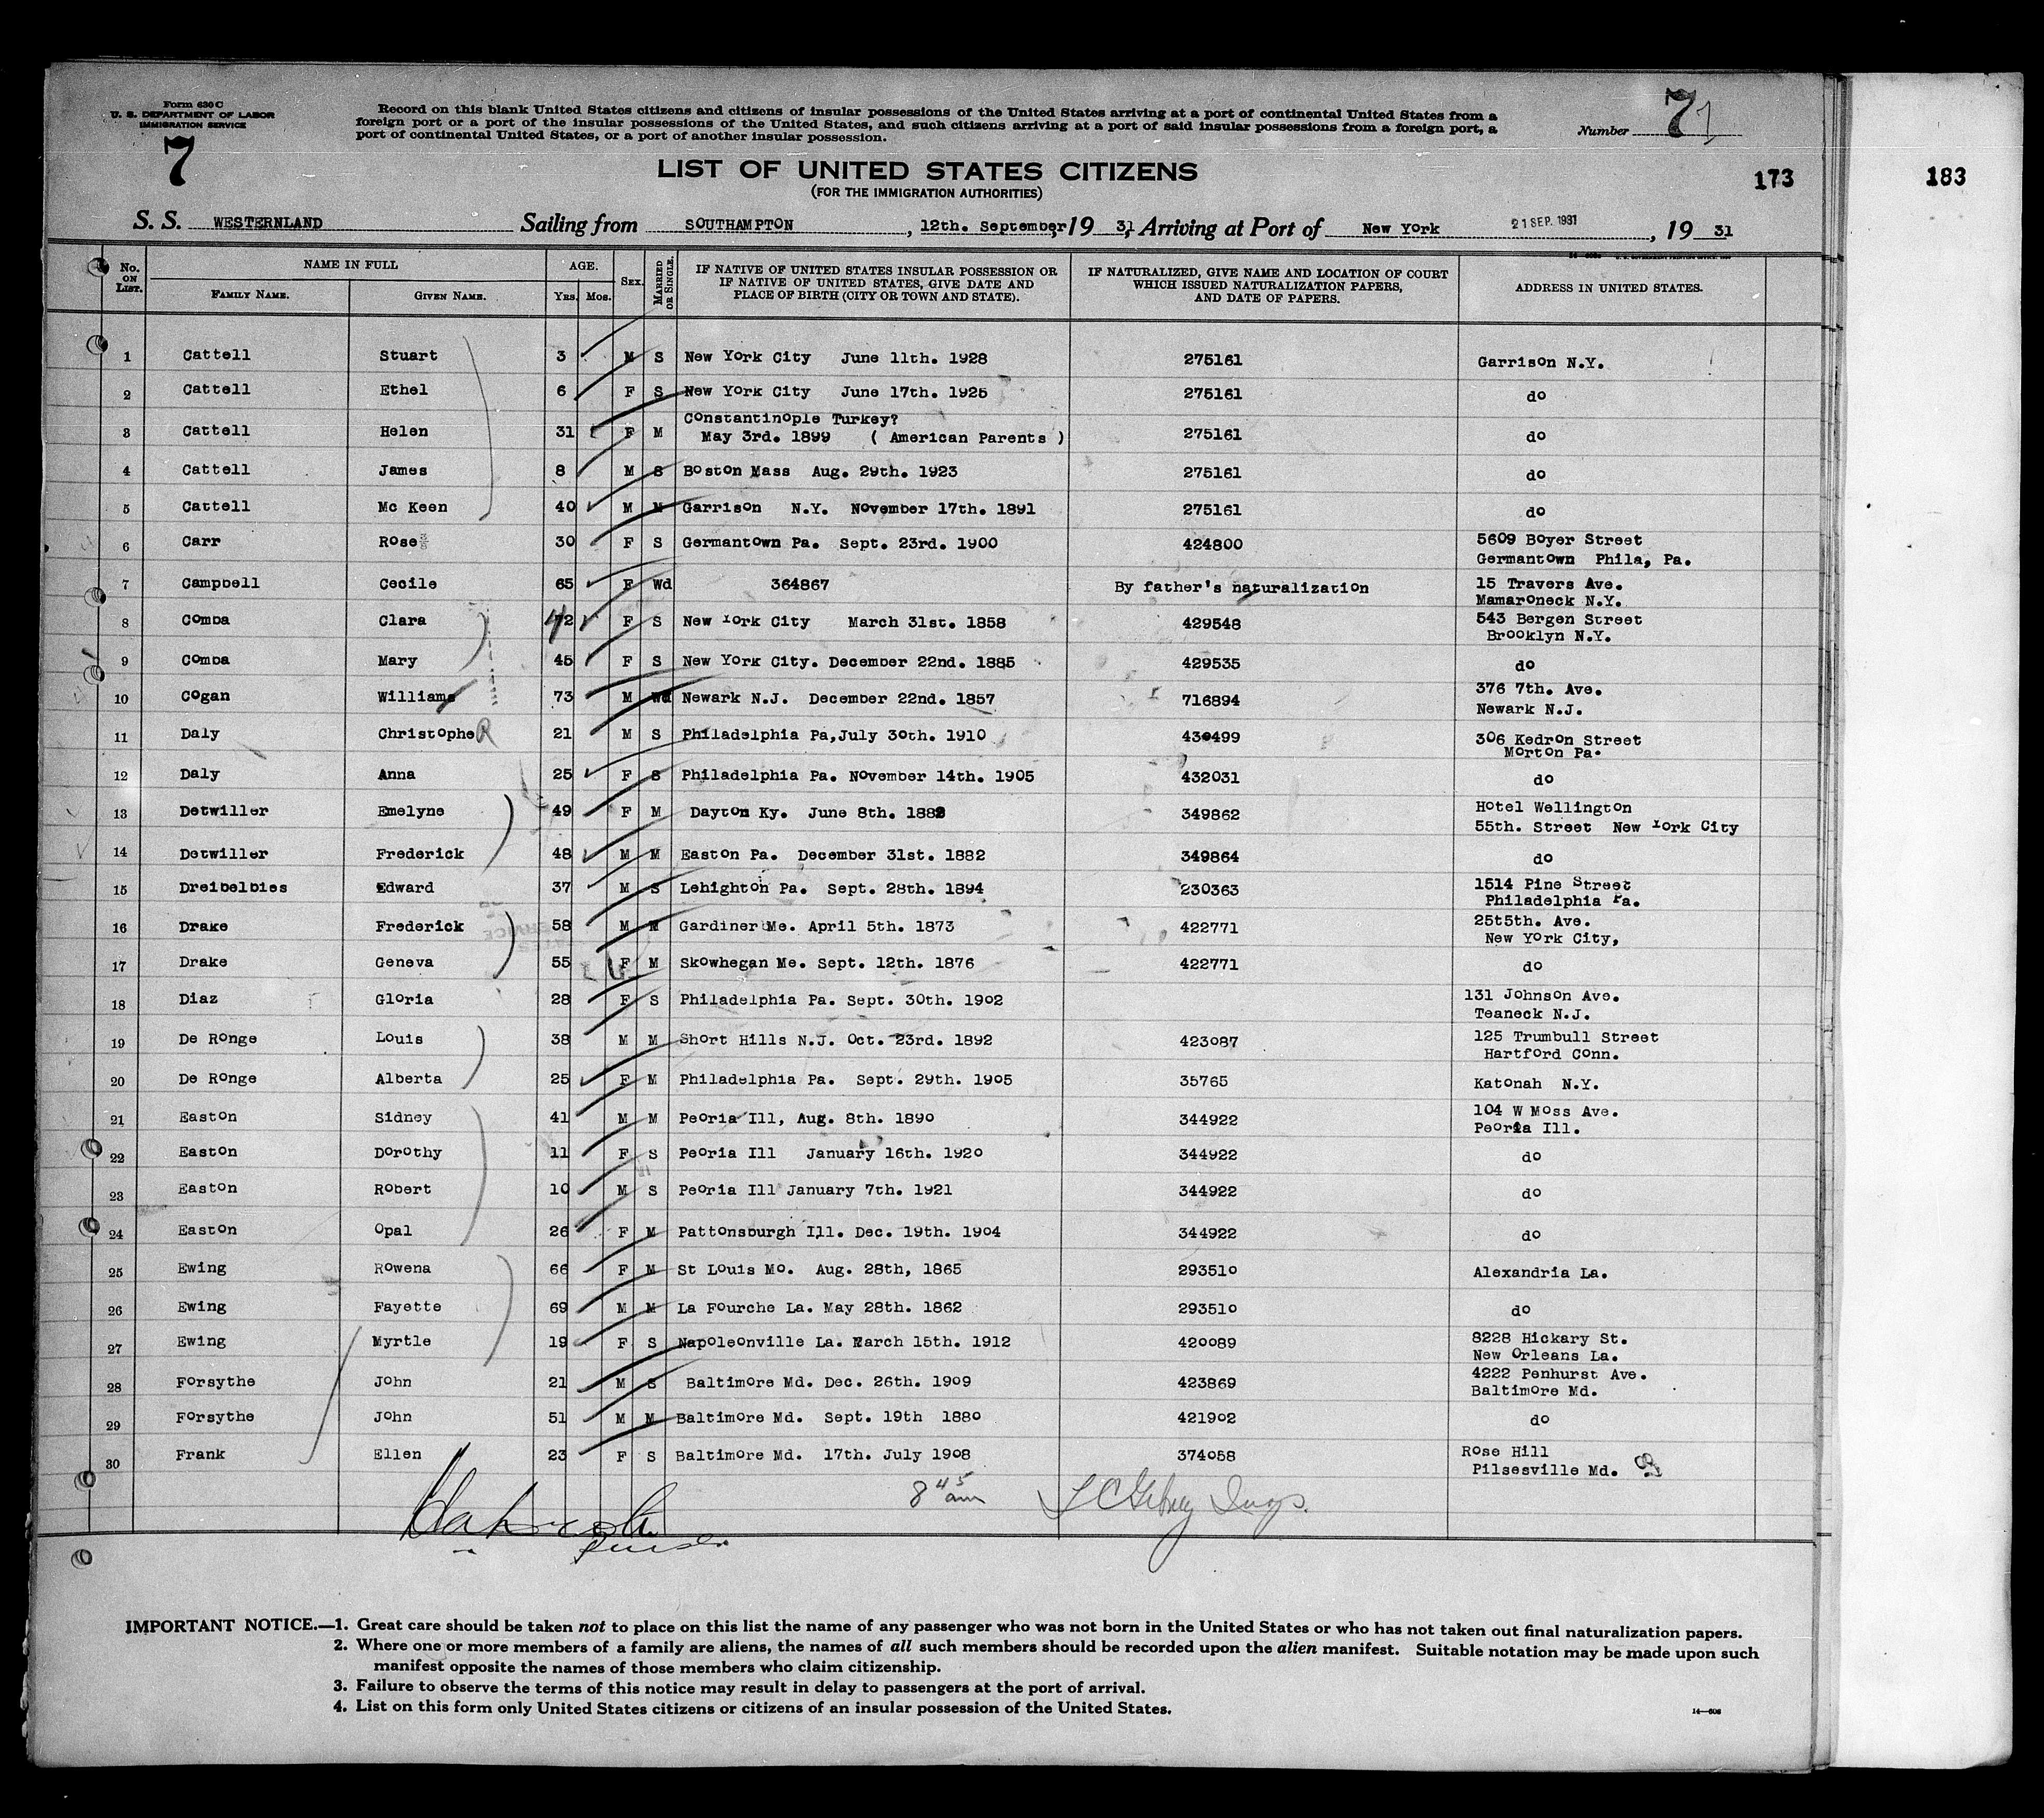 Form 630 C
U. S. DEPARTMENT OF LABOR
IMMIGRATION SERVICE
7
Record on this blank United States citizens and citizens of insular possessions of the United States arriving at a port of continental United States from a
foreign port or a port of the insular possessions of the United States, and such citizens arriving at a port of said insular possessions from a foreign port, a
port of continental United States, or a port of another insular possession.
Number 7
LIST OF UNITED STATES CITIZENS
(FOR THE IMMIGRATION AUTHORITIES)
173
183
S. S. WESTERNLAND Sailing from SOUTHAMPTON, 12th. September, 19 31, Arriving at Port of New York 21 SEP. 1931, 19 31
No. ON LIST. NAME IN FULL FAMILY NAME. GIVEN NAME. AGE. Yrs. Mos. SEX. MARRIED OR SINGLE. IF NATIVE OF UNITED STATES INSULAR POSSESSION OR IF NATIVE OF UNITED STATES, GIVE DATE AND PLACE OF BIRTH (CITY OR TOWN AND STATE). IF NATURALIZED, GIVE NAME AND LOCATION OF COURT WHICH ISSUED NATURALIZATION PAPERS, AND DATE OF PAPERS. ADDRESS IN UNITED STATES.
1 Cattell Stuart 3 M S New York City June 11th. 1928 275161 Garrison N.Y.
2 Cattell Ethel 6 F S New York City June 17th. 1925 275161 do
3 Cattell Helen 31 F M Constantinople Turkey? May 3rd. 1899 ( American Parents ) 275161 do
4 Cattell James 8 M S Boston Mass Aug. 29th. 1923 275161 do
5 Cattell Mc Keen 40 M M Garrison N.Y. November 17th. 1891 275161 do
6 Carr Rose 30 F S Germantown Pa. Sept. 23rd. 1900 424800 5609 Boyer Street Germantown Phila, Pa.
7 Campbell Cecile 65 F Wd 364867 By father's naturalization 15 Travers Ave. Mamaroneck N.Y.
8 Comba Clara 72 F S New York City March 31st. 1858 429548 543 Bergen Street Brooklyn N.Y.
9 Comba Mary 45 F S New York City. December 22nd. 1885 429535 do
10 Cogan Williams 73 M Wd Newark N.J. December 22nd. 1857 716894 376 7th. Ave. Newark N.J.
11 Daly ChristopheR 21 M S Philadelphia Pa,July 30th. 1910 430499 306 Kedron Street Morton Pa.
12 Daly Anna 25 F S Philadelphia Pa. November 14th. 1905 432031 do
13 Detwiller Emelyne 49 F M Dayton Ky. June 8th. 1882 349862 Hotel Wellington 55th. Street New York City
14 Detwiller Frederick 48 M M Easton Pa. December 31st. 1882 349864 do
15 Dreibelbies Edward 37 M S Lehighton Pa. Sept. 28th. 1894 230363 1514 Pine Street Philadelphia Pa.
16 Drake Frederick 58 M M Gardiner Me. April 5th. 1873 422771 25t5th. Ave. New York City,
17 Drake Geneva 55 F M Skowhegan Me. Sept. 12th. 1876 422771 do
18 Diaz Gloria 28 F S Philadelphia Pa. Sept. 30th. 1902 131 Johnson Ave. Teaneck N.J.
19 De Ronge Louis 38 M M Short Hills N.J. Oct. 23rd. 1892 423087 125 Trumbull Street Hartford Conn.
20 De Ronge Alberta 25 F M Philadelphia Pa. Sept. 29th. 1905 35765 Katonah N.Y.
21 Easton Sidney 41 M M Peoria Ill, Aug. 8th. 1890 344922 104 W Moss Ave. Peoria Ill.
22 Easton Dorothy 11 F S Peoria Ill January 16th. 1920 344922 do
23 Easton Robert 10 M S Peoria Ill January 7th. 1921 344922 do
24 Easton Opal 26 F M Pattonsburgh Ill. Dec. 19th. 1904 344922 do
25 Ewing Rowena 66 F M St Louis Mo. Aug. 28th, 1865 293510 Alexandria La.
26 Ewing Fayette 69 M M La Fourche La. May 28th. 1862 293510 do
27 Ewing Myrtle 19 F S Napoleonville La. March 15th. 1912 420089 8228 Hickary St. New Orleans La.
28 Forsythe John 21 M S Baltimore Md. Dec. 26th. 1909 423869 4222 Penhurst Ave. Baltimore Md.
29 Forsythe John 51 M M Baltimore Md. Sept. 19th 1880 421902 do
30 Frank Ellen 23 F S Baltimore Md. 17th. July 1908 374058 Rose Hill Pilsesville Md.
8 45 am
Purser
IMPORTANT NOTICE.—1. Great care should be taken not to place on this list the name of any passenger who was not born in the United States or who has not taken out final naturalization papers.
2. Where one or more members of a family are aliens, the names of all such members should be recorded upon the alien manifest. Suitable notation may be made upon such
manifest opposite the names of those members who claim citizenship.
3. Failure to observe the terms of this notice may result in delay to passengers at the port of arrival.
4. List on this form only United States citizens or citizens of an insular possession of the United States.
14—608